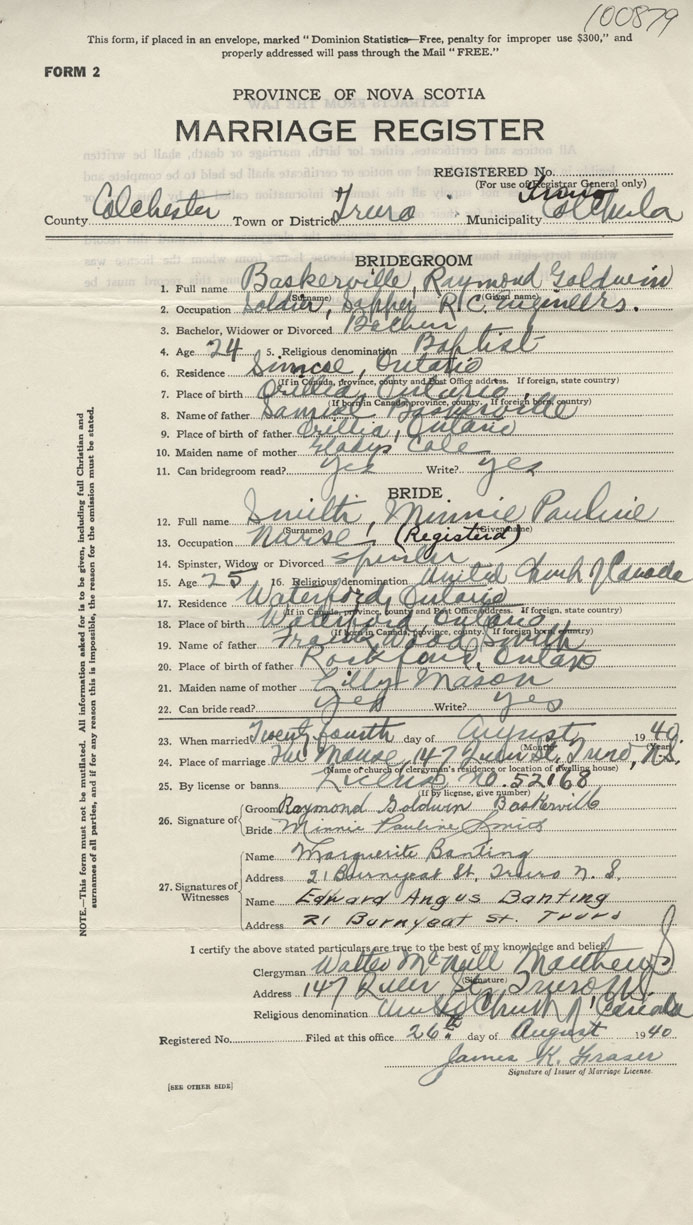 100879
This form, if placed in an envelope, marked "Dominion Statistics—Free, penalty for improper use $300," and
properly addressed will pass through the Mail "FREE."
FORM 2
PROVINCE OF NOVA SCOTIA
MARRIAGE REGISTER
REGISTERED No.
(For use of Registrar General only)
Truro
County Colchester Town or District Truro Municipality Colchester
BRIDEGROOM
1. Full name Baskerville, Raymond Goldwin
(Surname) (Given name)
2. Occupation Soldier, Sapper R.C. Engineers.
3. Bachelor, Widower or Divorced Bachelor
4. Age 24 5. Religious denomination Baptist
6. Residence Simcoe, Ontario
(If in Canada, province, county and Post Office address. If foreign, state country)
7. Place of birth Orillia, Ontario
(If born in Canada, province, county. If foreign born, country)
8. Name of father Samuel Baskerville
9. Place of birth of father Orillia, Ontario
10. Maiden name of mother Gladys Cole
11. Can bridegroom read? Yes Write? yes
BRIDE
12. Full name Smith, Minnie Pauline
(Surname) (Given name)
13. Occupation Nurse (Registered)
14. Spinster, Widow or Divorced Spinster
15. Age 25 16. Religious denomination United Church of Canada
17. Residence Waterford, Ontario
(If in Canada, province, county and Post Office address. If foreign, state country)
18. Place of birth Waterford, Ontario
(If born in Canada, province, county. If foreign born, country)
19. Name of father Frank Wood Smith
20. Place of birth of father Rockford, Ontario
21. Maiden name of mother Lilly Mason
22. Can bride read? Yes Write? Yes
23. When married Twenty fourth day of August 1940.
(Month) (Year)
24. Place of marriage The Manse, 147 Queen St, Truro, N.S.
(Name of church or clergyman's residence or location of dwelling house)
25. By license or banns License No. 52168
(If by license, give number)
26. Signature of
Groom Raymond Goldwin Baskerville
Bride Minnie Pauline Smith
27. Signatures of Witnesses
Name Marguerite Banting
Address 21 Burnyeat St, Truro N. S.
Name Edward Angus Banting
Address 21 Burnyeat St. Truro
I certify the above stated particulars are true to the best of my knowledge and belief.
Clergyman Walter McNeill Matthews
(Signature)
Address 147 Queen St., Truro N.S.
Religious denomination United Church of Canada
Registered No. Filed at this office 26th day of August 1940
James K. Fraser
Signature of Issuer of Marriage License.
[SEE OTHER SIDE]
NOTE.—This form must not be mutilated. All information asked for is to be given, including full Christian and
surnames of all parties, and if for any reason this is impossible, the reason for the omission must be stated.